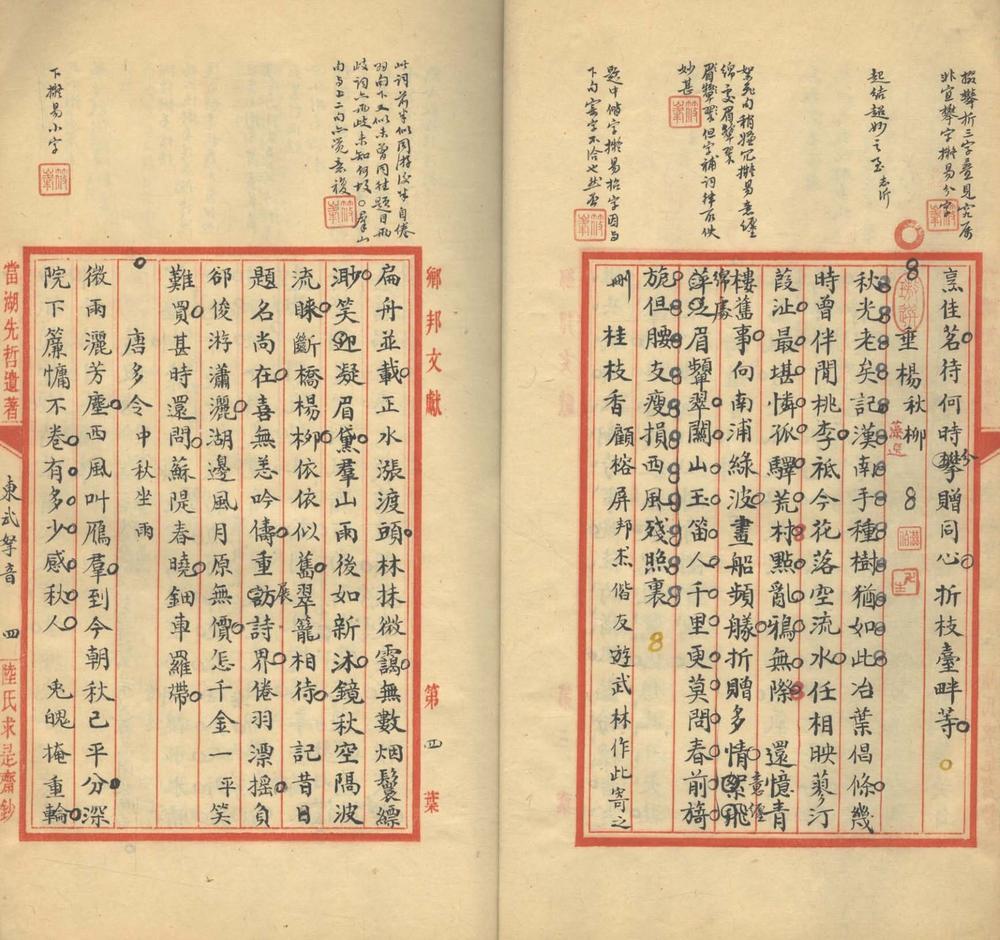 招攀折三字疊見究屬
非宜攀字擬易分字
起結超妙之至志沂
絮飛句稍嫌冗擬易意纏
綿處眉顰翠
眉顰翠但字補詞律百佚
妙甚
題中偕字擬易招字因與
下句寄字不洽也然否
烹佳茗待何時攀贈同心折枝臺畔等
分
垂楊秋柳
秋光老矣記漢南手種樹猶如此冶葉倡條幾
時曾伴閒桃李祗今花落空流水任相映蓼汀
葭沚最堪憐孤驛荒村點亂鴉無際 還憶青
樓舊事向南浦綠波畫船頻艤折贈多情絮飛
意纏
綿處
萍逐眉顰翠關山玉笛人千里更莫問春前旖
旎但腰支瘦損西風殘照裏
桂枝香顧榕屏邦杰偕友遊武林作此寄之
刪
此詞前半似同游後半自倦
羽句下又似未曾同往題曰兩
歧詞亦兩歧未知何故○羣山
句與上二句亦覺意複
下擬易小字
鄉邦文獻
第四葉
扁舟並載正水漲渡頭林抹微靄無數烟鬟縹
渺笑迎凝眉黛羣山雨後如新沐鏡秋空隔波
流睞斷橋楊柳依依似舊翠籠相待 記昔日
題名尚在喜無恙吟儔重訪詩界倦羽漂搖負
展
郤俊游瀟灑湖邊風月原無價怎千金一平笑
難買甚時還問蘇隄春曉鈿車羅帶
唐多令中秋坐雨
微雨灑芳塵西風叫鴈羣到今朝秋已平分深
院下簾慵不卷有多少感秋人 兎魄掩重輪
當湖先哲遺著
東武挐音
四
陸氏求是齋鈔